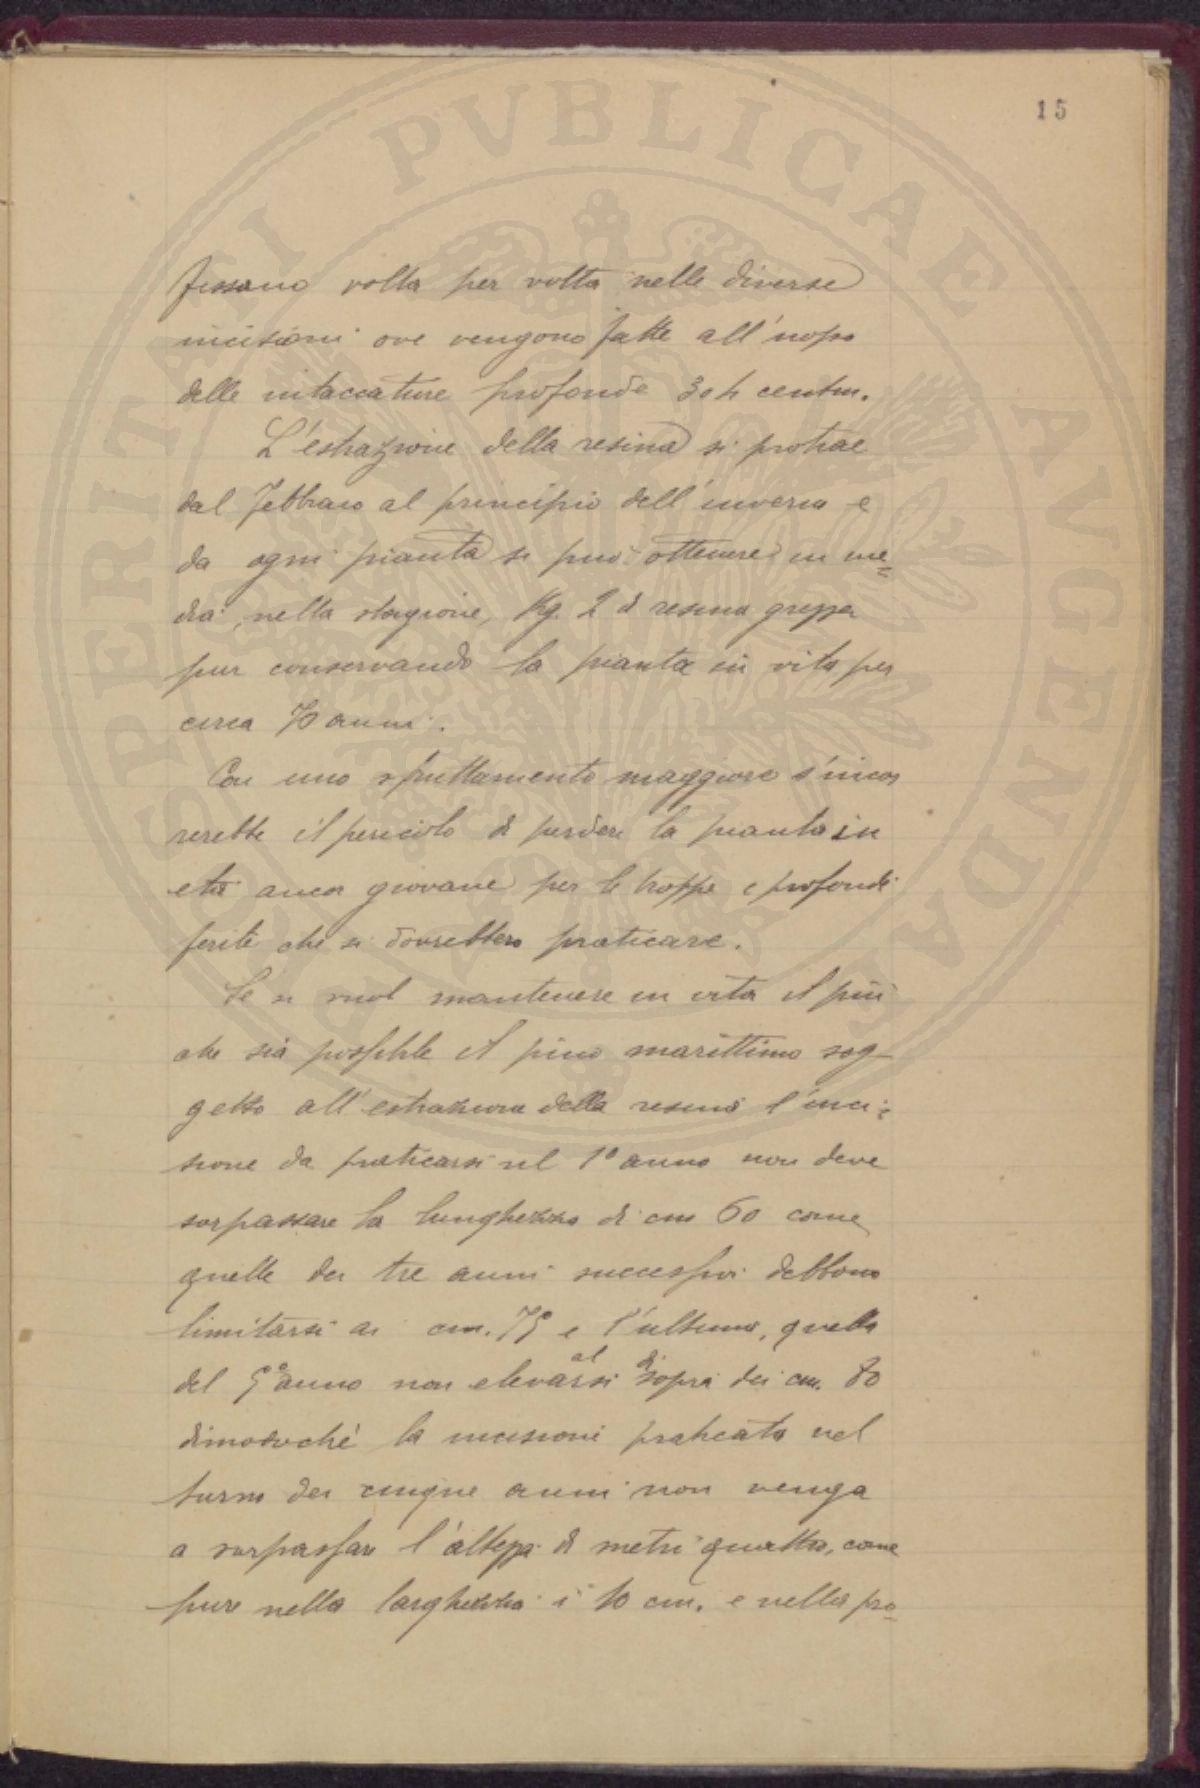 15
PROSPERITATI PVBLICAE AVGENDAE
fissano volta per volta nelle diverse
incisioni ove vengono fatte all'uopo
delle intaccature profonde 3 o 4 centm.
L'estrazione della resina si protrae
dal Febbraio al principio dell'inverno e
da ogni pianta si può ottenere in me=
dia, nella stagione, Kg. 2 di resina greggia
pur conservando la pianta in vita per
circa 70 anni.
Con uno sfruttamento maggiore s'incor
rerebbe il pericolo di perdere la pianta in
età ancor giovane per le troppe e profonde
ferite che si dovrebbero praticare.
Se si vuol mantenere in vita il più
che sia possibile il pino marittimo sog-
getto all'estrazione della resina l'inci=
sione da praticarsi nel 1º anno non deve
sorpassare la lunghezza di cm 60 come
quelle dei tre anni successivi debbono
limitarsi ai cm. 75 e l'ultima, quella
del 5º anno non elevarsi al di sopra dei cm. 80
dimodochè la incisione praticata nel
turno dei cinque anni non venga
a sorpassare l'altezza di metri quattro, come
pure nella larghezza i 10 cm. e nella pro=